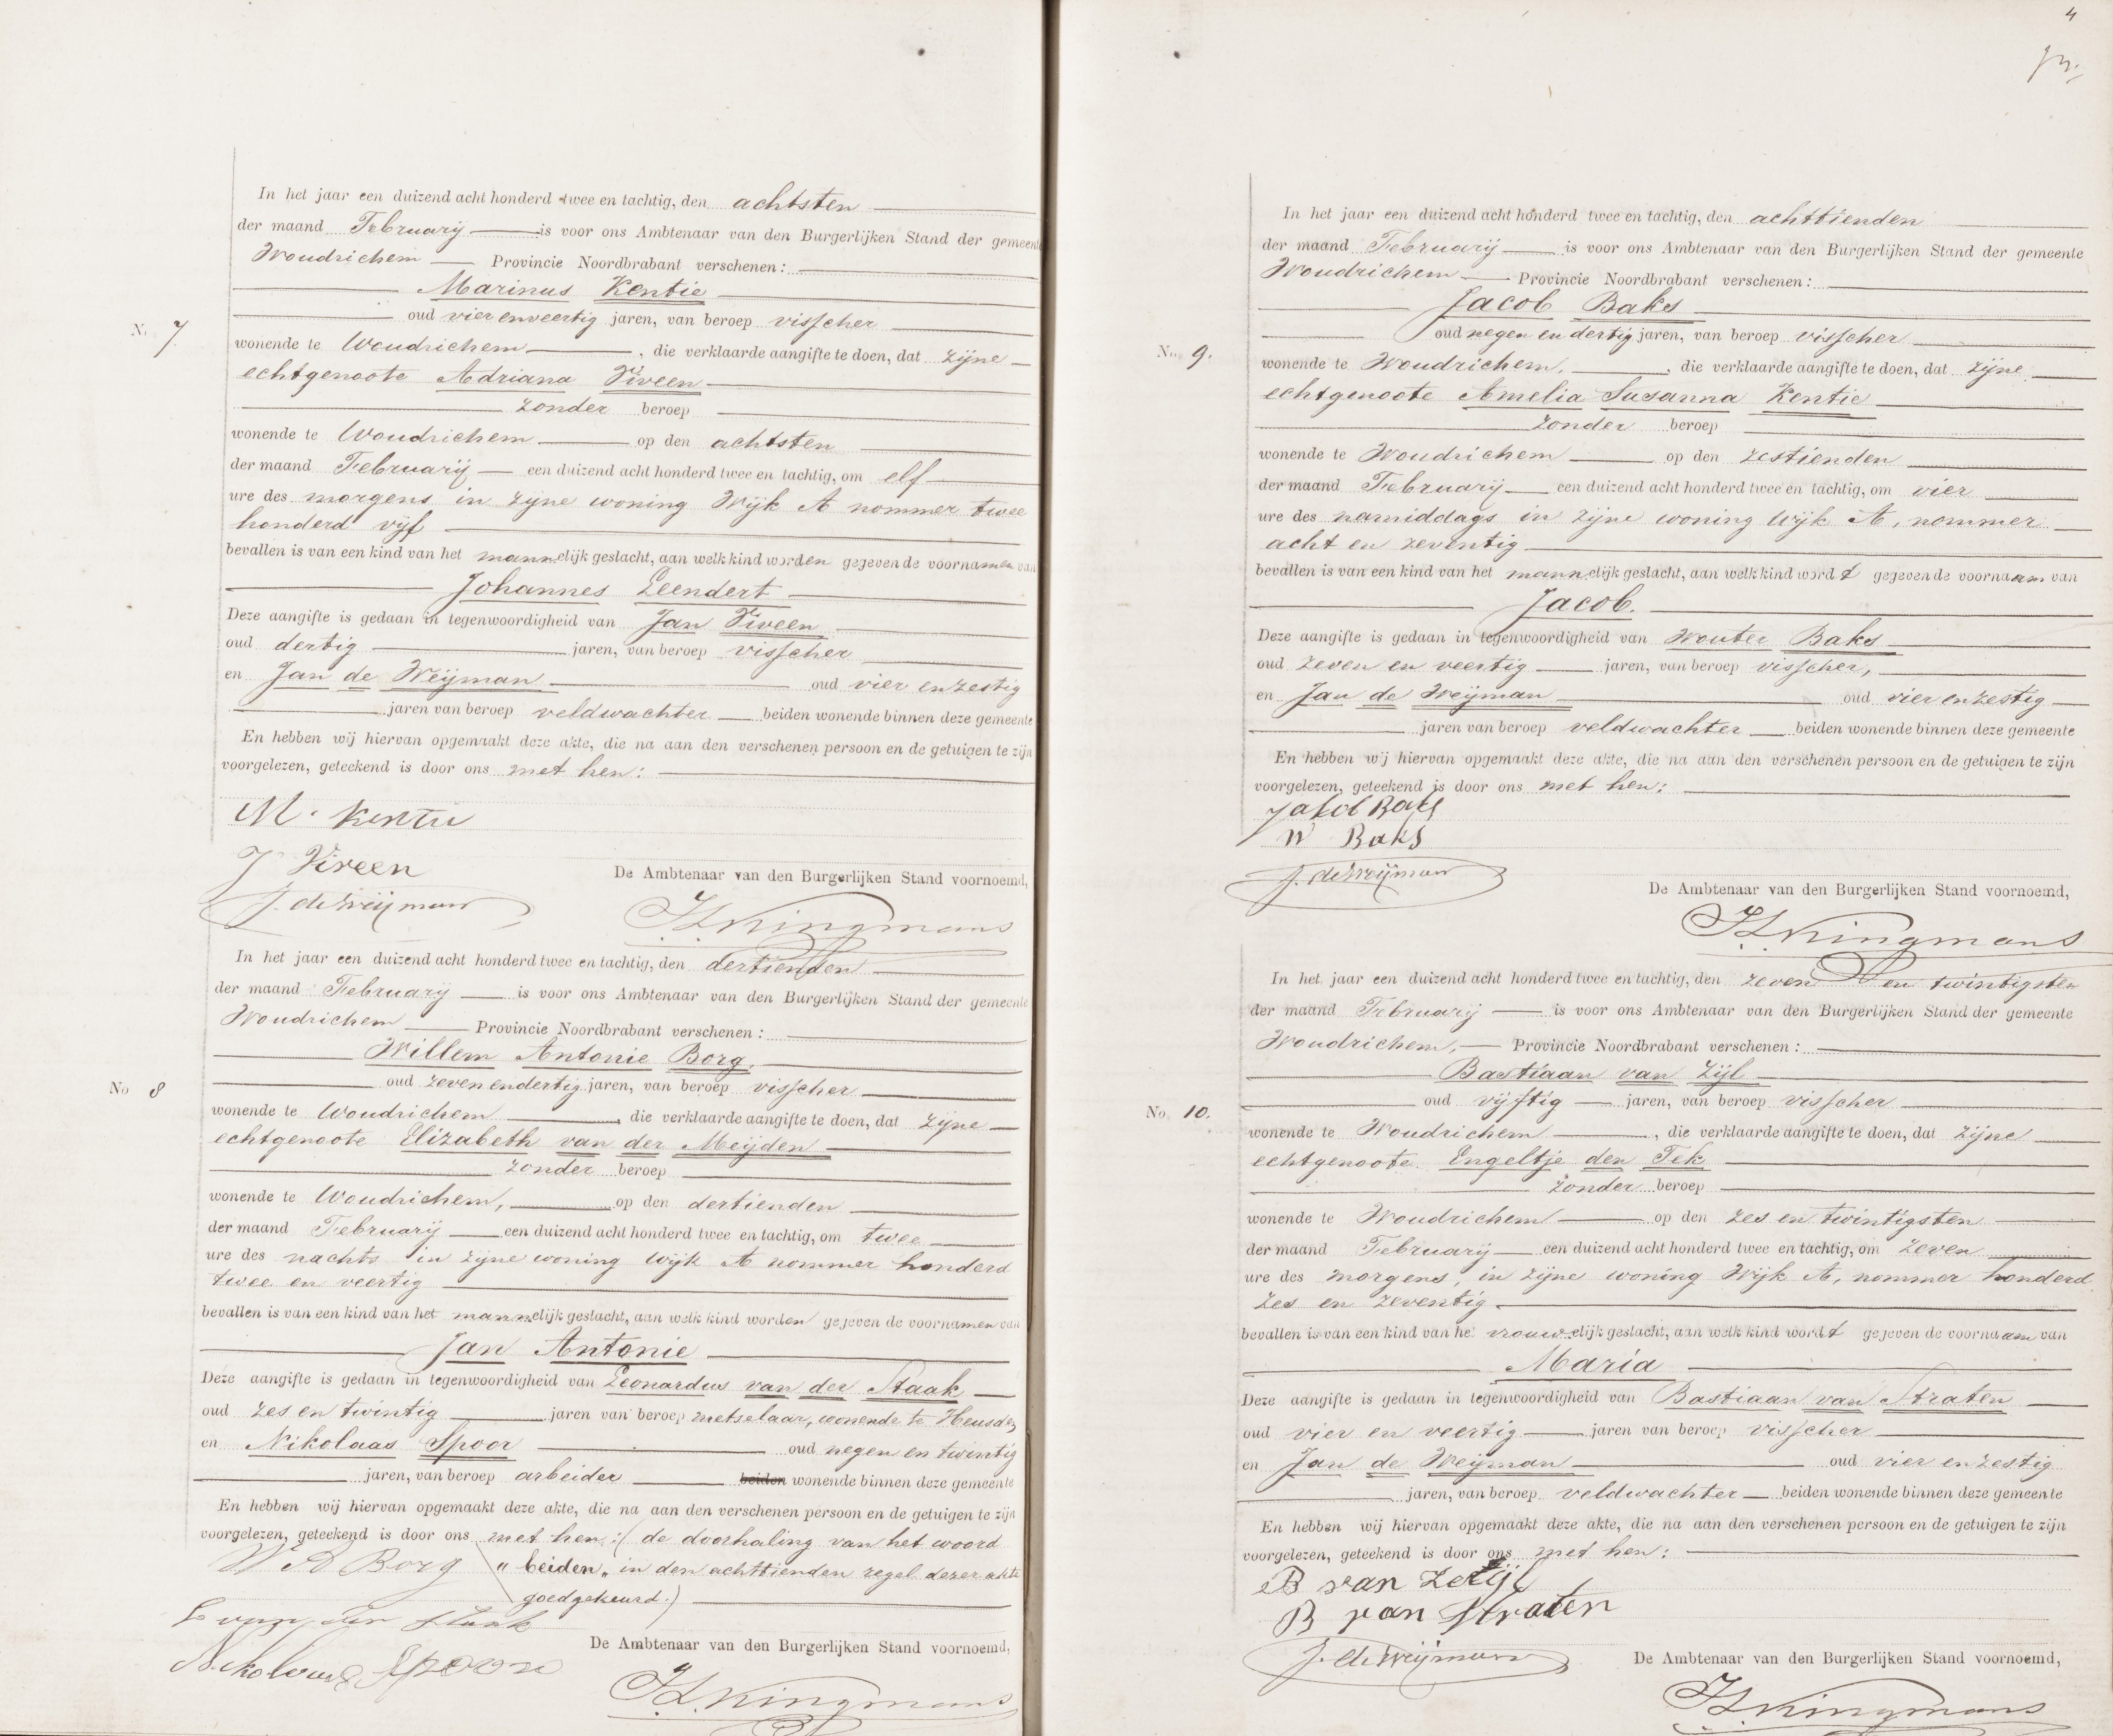 In het jaar een duizend acht honderd twee en tachtig, den achtsten
der maand February is voor ons Ambtenaar van den Burgerlijken Stand der gemeente
Woudrichem Provincie Noordbrabant verschenen:
Marinus Kentie
oud vier en veertig jaren, van beroep visscher
No. 7
wonende te Woudrichem, die verklaarde aangifte te doen, dat zijne
echtgenoote Adriana Viveen
zonder beroep
wonende te Woudrichem op den achtsten
der maand February een duizend acht honderd twee en tachtig, om elf
ure des morgens in zijne woning Wijk A nommer twee
honderd vijf
bevallen is van een kind van het mannelijk geslacht, aan welk kind worden gegeven de voornamen van
Johannes Leendert
Deze aangifte is gedaan in tegenwoordigheid van Jan Viveen
oud dertig jaren, van beroep visscher
en Jan de Weijman oud vier en zestig
jaren van beroep veldwachter beiden wonende binnen deze gemeente
En hebben wij hiervan opgemaakt deze akte, die na aan den verschenen persoon en de getuigen te zijn
voorgelezen, geteekend is door ons met hen:
M. Kentie
J Viveen
De Ambtenaar van den Burgerlijken Stand voornoemd,
J. de Weijman
Kingmans
In het jaar een duizend acht honderd twee en tachtig, den dertienden
der maand February is voor ons Ambtenaar van den Burgerlijken Stand der gemeente
Woudrichem Provincie Noordbrabant verschenen:
Willem Antonie Borg,
No 8
oud zeven en dertig jaren, van beroep visscher
wonende te Woudrichem, die verklaarde aangifte te doen, dat zijne
echtgenoote Elizabeth van der Meijden
zonder beroep
wonende te Woudrichem, op den dertienden
der maand February een duizend acht honderd twee en tachtig, om twee
ure des nachts in zijne woning wijk A nommer honderd
twee en veertig
bevallen is van een kind van het mannelijk geslacht, aan welk kind worden gegeven de voornamen van
Jan Antonie
Deze aangifte is gedaan in tegenwoordigheid van Leonardus van der Staak
oud zes en twintig jaren van beroep metselaar, wonende te Heusden
en Nikolaas Spoor oud negen en twintig
jaren, van beroep arbeider beiden wonende binnen deze gemeente
En hebben wij hiervan opgemaakt deze akte, die na aan den verschenen persoon en de getuigen te zijn
voorgelezen, geteekend is door ons met hen: (de doorhaling van het woord
W A Borg
"beiden" in den achttienden regel dezer akte
goedgekeurd.)
L van der Staak
De Ambtenaar van den Burgerlijken Stand voornoemd,
Nikolaas Spoor
Kingmans
4
In het jaar een duizend acht honderd twee en tachtig, den achttienden
der maand February is voor ons Ambtenaar van den Burgerlijken Stand der gemeente
Woudrichem Provincie Noordbrabant verschenen:
Jacob Baks
oud negen en dertig jaren, van beroep visscher
No. 9.
wonende te Woudrichem, die verklaarde aangifte te doen, dat zijne
echtgenoote Amelia Susanna Kentie
zonder beroep
wonende te Woudrichem op den zestienden
der maand February een duizend acht honderd twee en tachtig, om vier
ure des namiddags in zijne woning Wijk A, nommer
acht en zeventig
bevallen is van een kind van het mannelijk geslacht, aan welk kind wordt gegeven de voornaam van
Jacob.
Deze aangifte is gedaan in tegenwoordigheid van Wouter Baks
oud zeven en veertig jaren, van beroep visscher,
en Jan de Weijman oud vier en zestig
jaren van beroep veldwachter beiden wonende binnen deze gemeente
En hebben wij hiervan opgemaakt deze akte, die na aan den verschenen persoon en de getuigen te zijn
voorgelezen, geteekend is door ons met hen:
Jakob Baks
W Baks
J. de Weijman
De Ambtenaar van den Burgerlijken Stand voornoemd,
Kingmans
In het jaar een duizend acht honderd twee en tachtig, den zeven en twintigsten
der maand February is voor ons Ambtenaar van den Burgerlijken Stand der gemeente
Woudrichem, Provincie Noordbrabant verschenen:
Bastiaan van Zijl
oud vijftig jaren, van beroep visscher
No. 10.
wonende te Woudrichem, die verklaarde aangifte te doen, dat zijne
echtgenoote Engeltje den Tek
zonder beroep
wonende te Woudrichem op den zes en twintigsten
der maand February een duizend acht honderd twee en tachtig, om zeven
ure des morgens, in zijne woning Wijk A, nommer honderd
zes en zeventig.
bevallen is van een kind van het vrouwelijk geslacht, aan welk kind wordt gegeven de voornaam van
Maria
Deze aangifte is gedaan in tegenwoordigheid van Bastiaan van Straten
oud vier en veertig jaren van beroep visscher
en Jan de Weijman oud vier en zestig
jaren, van beroep veldwachter beiden wonende binnen deze gemeente
En hebben wij hiervan opgemaakt deze akte, die na aan den verschenen persoon en de getuigen te zijn
voorgelezen, geteekend is door ons met hen:
B van
B van Straten
J. de Weijman
De Ambtenaar van den Burgerlijken Stand voornoemd,
Kingmans